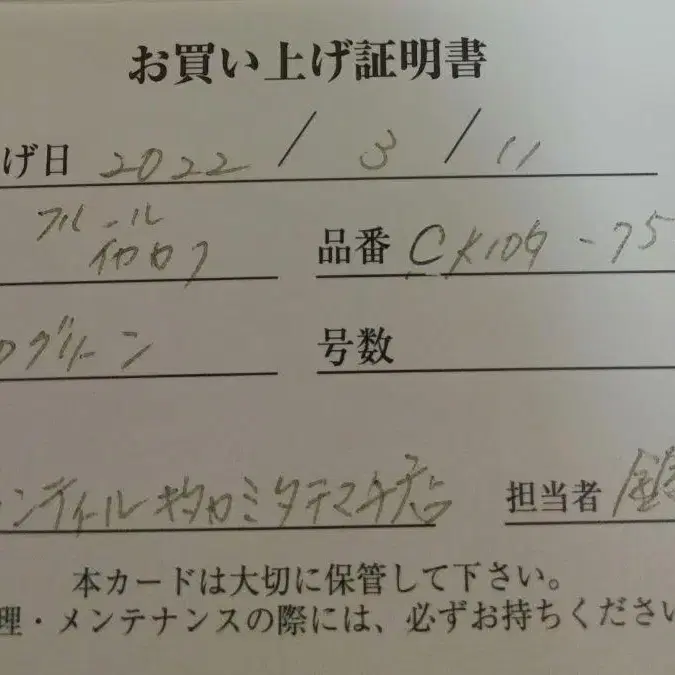 お買い上げ証明書
げ日 2022 / 3 / 11
フルール
品番 CK109-75
グリーン 号数
ンティール キタカミタテマチ店 担当者
本カードは大切に保管して下さい。
理・メンテナンスの際には、必ずお持ちくださ